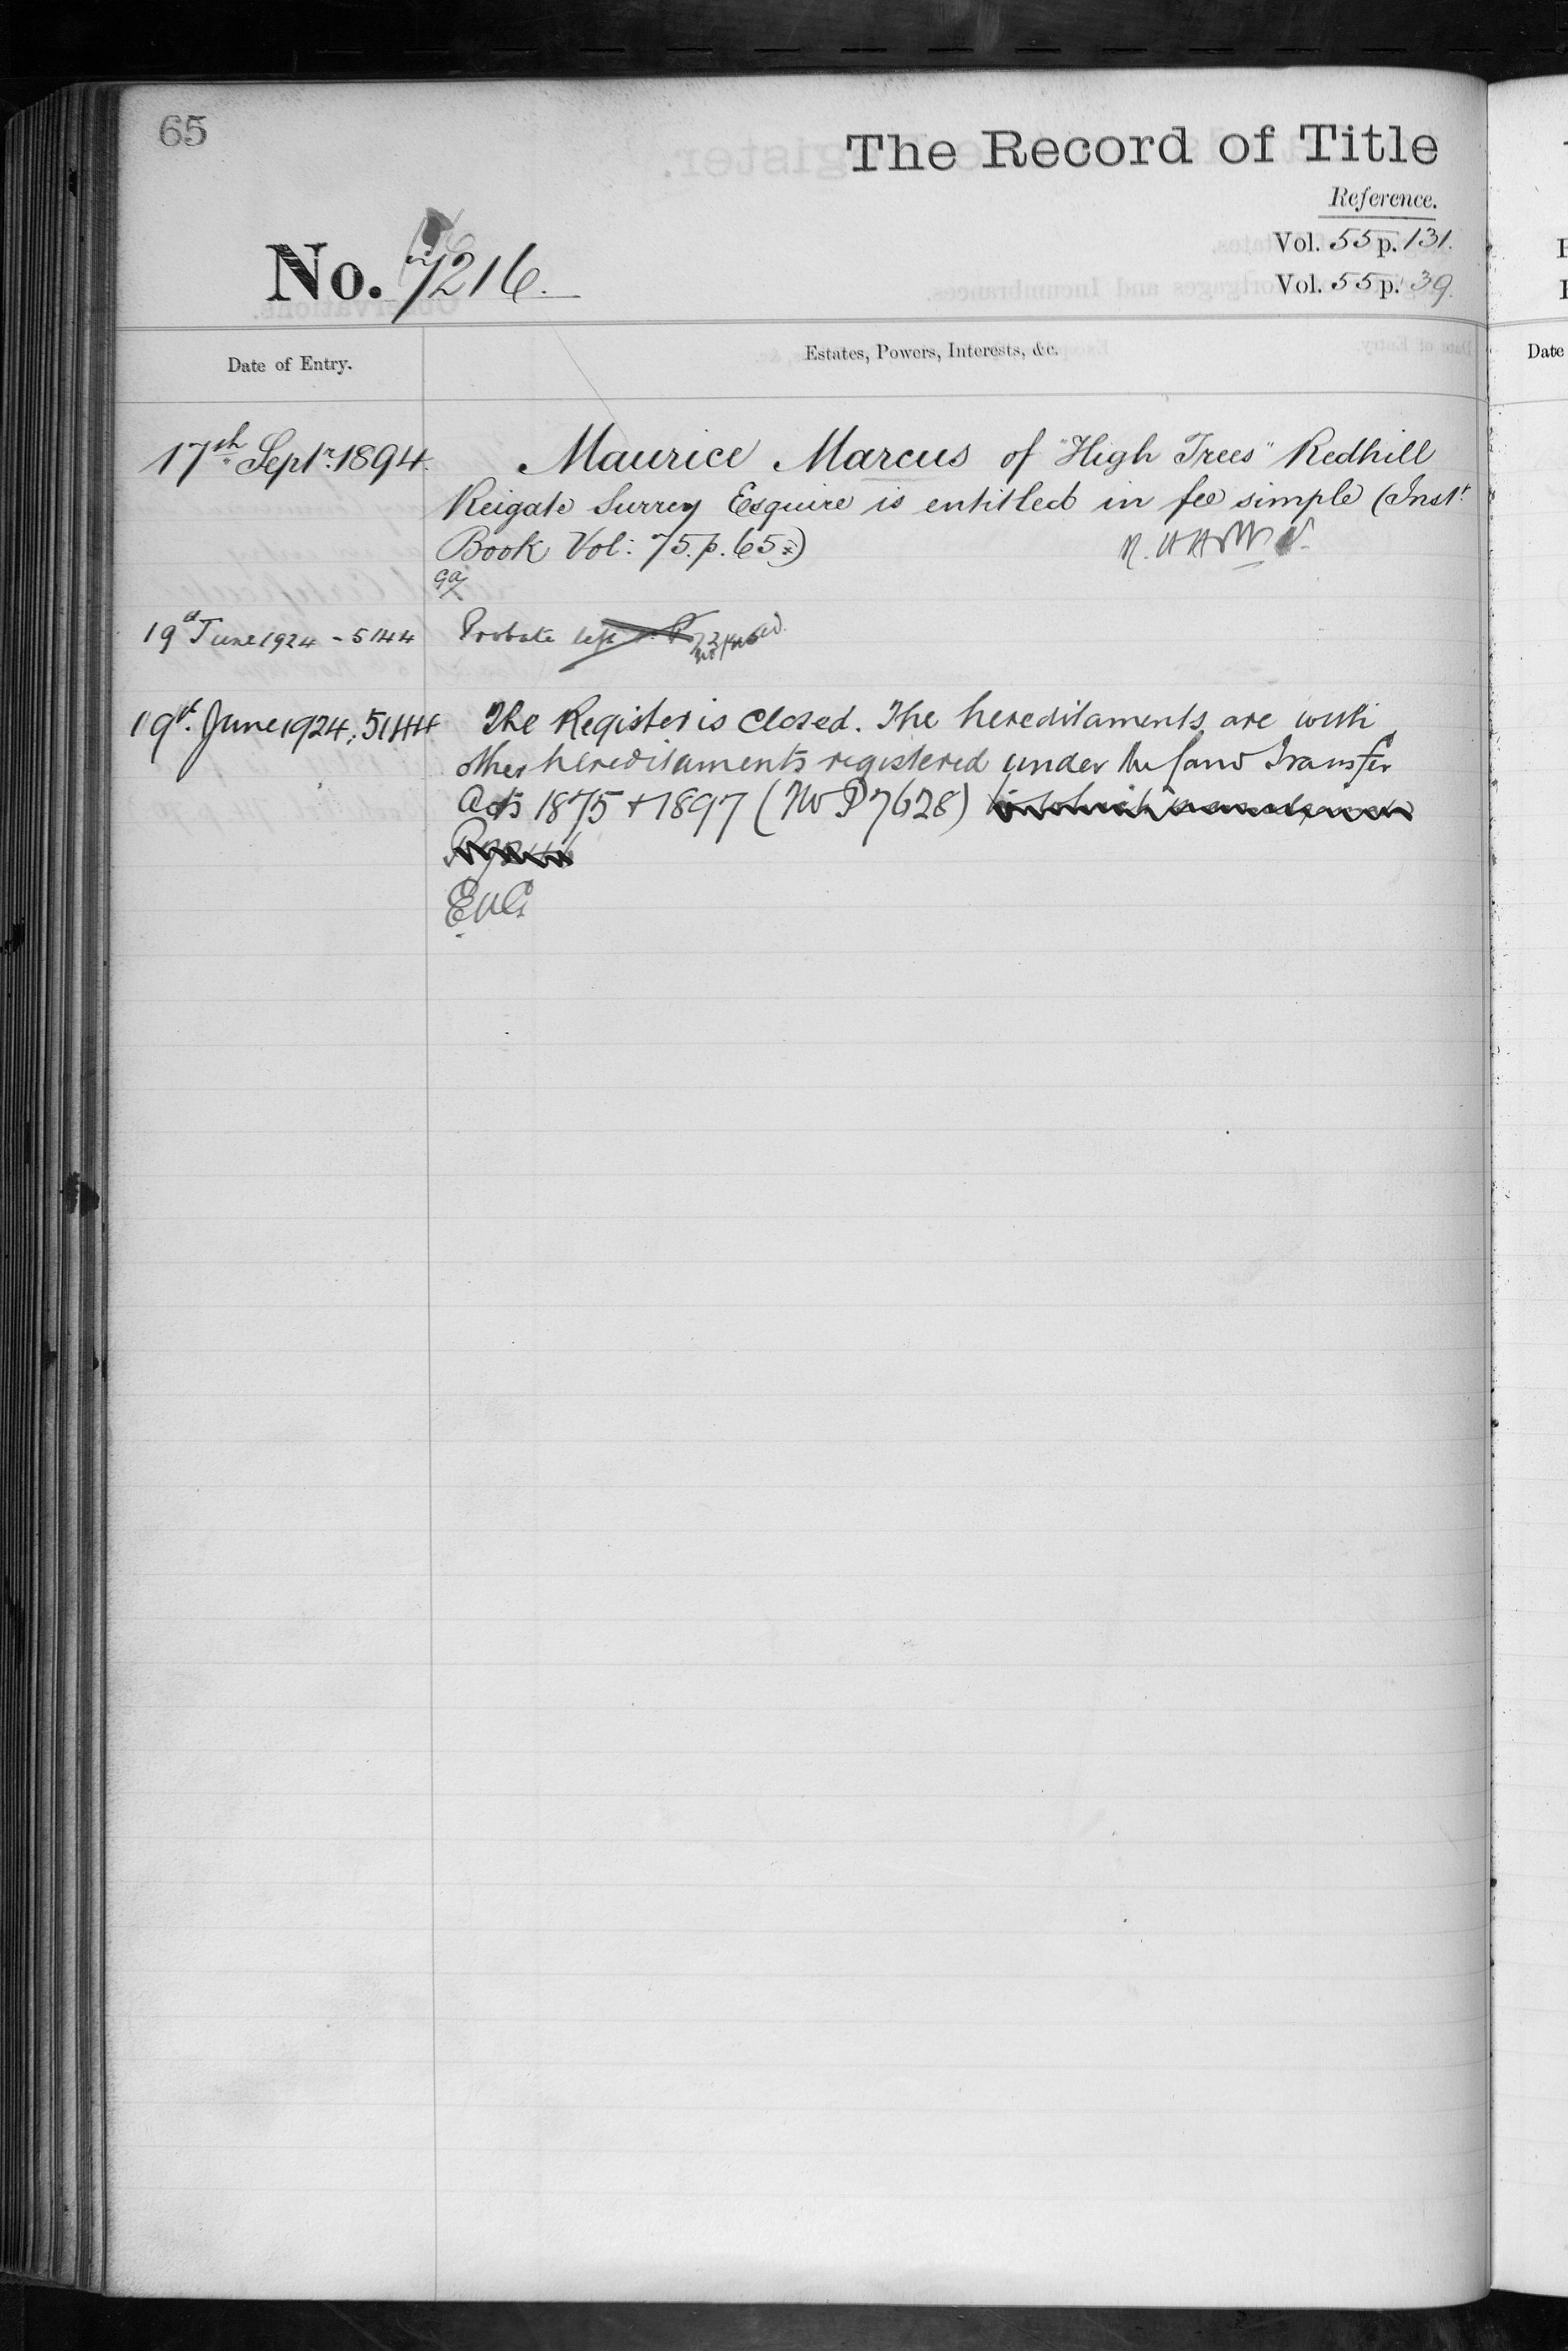 65
The Record of Title
Reference.
No. 7216.
Vol. 55 p. 131.
Vol. 55 p. 39.
Date of Entry.
Estates, Powers, Interests, &c.
17th Septr. 1894.
Maurice Marcus of "High Trees" Redhill
Reigate Surrey Esquire is entitled in fee simple (Instt.
Book Vol: 75. p. 65.)
19th June 1924 - 5144
Probate left
19th. June 1924; 5144
The Register is closed. The hereditaments are with
other hereditaments registered under the Land Transfer
Acts 1875 + 1897 (No P 7628)
Date